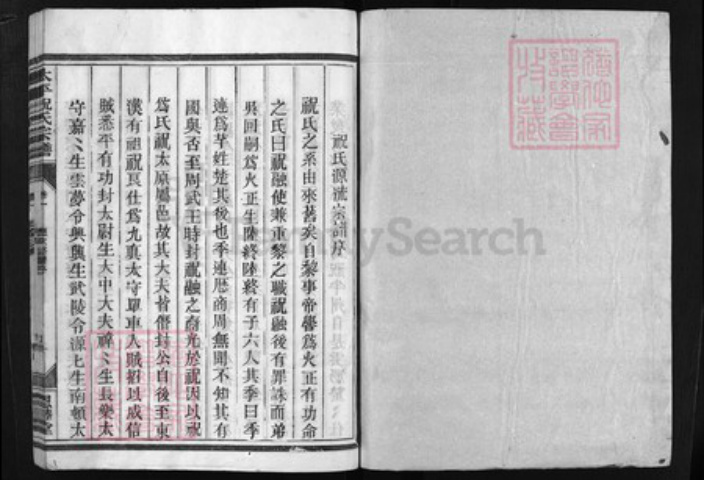 祝氏源流宗譜序
祝氏之系由來舊矣自黎事帝嚳爲火正有功命
之氏曰祝融使兼重黎之職祝融後有罪誅而弟
吳回嗣爲火正生陸終陸終有子六人其季曰季
連爲芊姓楚其後也季連歷商周無則不知其有
國與否至周武王時封祝融之裔允於祝因以祝
爲氏祝太原屬邑故其大夫皆僭封公自後至東
漢有祖祝良仕爲九眞太守單車入賊招以威信
賊悉平有功封太尉生大中大夫 生長樂太
守嘉嘉生雲夢令興興生武陵令源上生南頓太
太平祝氏宗譜
卷一
MySearch